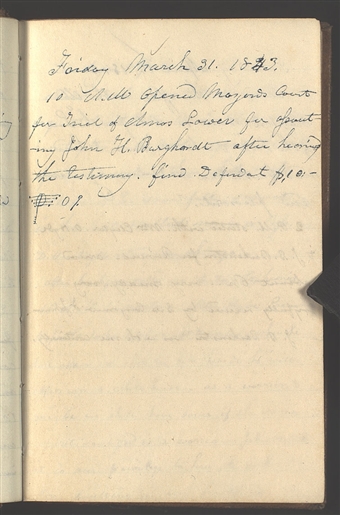 Friday March 31. 1843.
10 A.M Opened Mayors Court
for Trial of Amos Lower for
John H. Burghardt after hearing
the testimony. find Defendat $10-